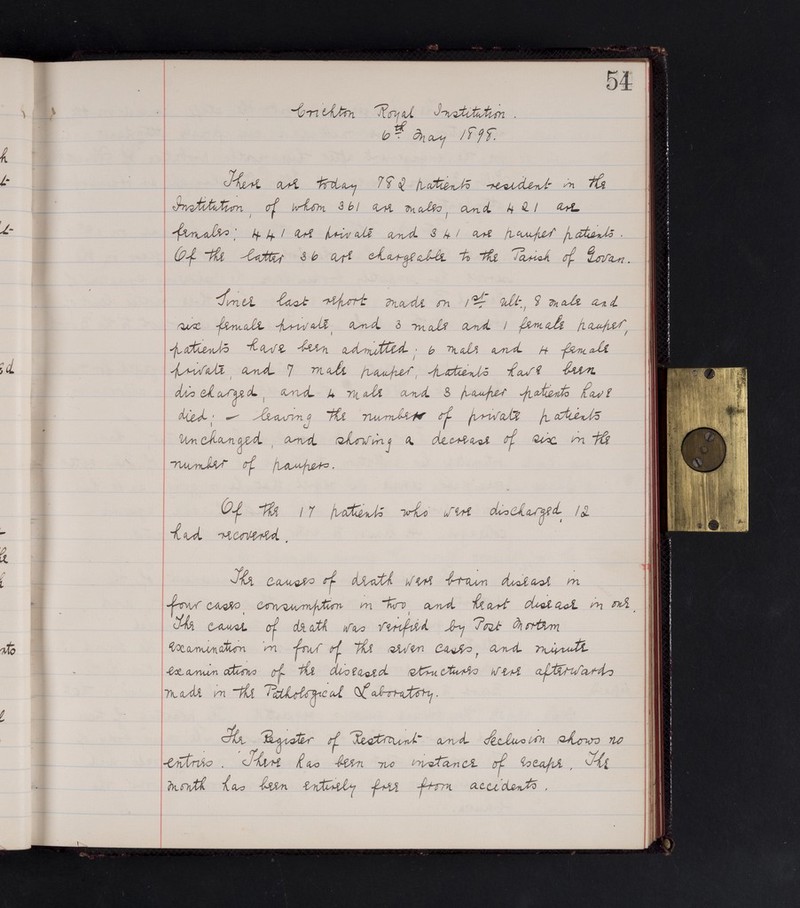 54
Crichton Royal Institution.
6th May 1898.
There are today 782 patients resident in the
Institution, of whom 361 are males, and 421 are
females; 441 are private and 341 are pauper patients.
Of the latter 36 are chargeable to the Parish of Govan.
Since last report made on 1st ult., 8 male and
six female private, and 3 male and 1 female pauper,
patients have been admitted; 6 male and 4 female
private, and 7 male pauper, patients have been
discharged, and 4 male and 3 pauper patients have
died; — leaving the number of private patients
unchanged, and showing a decrease of six in the
number of paupers.
Of the 17 patients who were discharged, 12
had recovered.
The causes of death were brain disease in
four cases, consumption in two, and heart disease in one.
The cause of death was verified by Post Mortem
examination in four of the seven cases, and minute
examinations of the diseased structures were afterwards
made in the Pathological Laboratory.
The Register of Restraint and Seclusion shows no
entries. There has been no instance of escape. The
month has been entirely free from accidents.